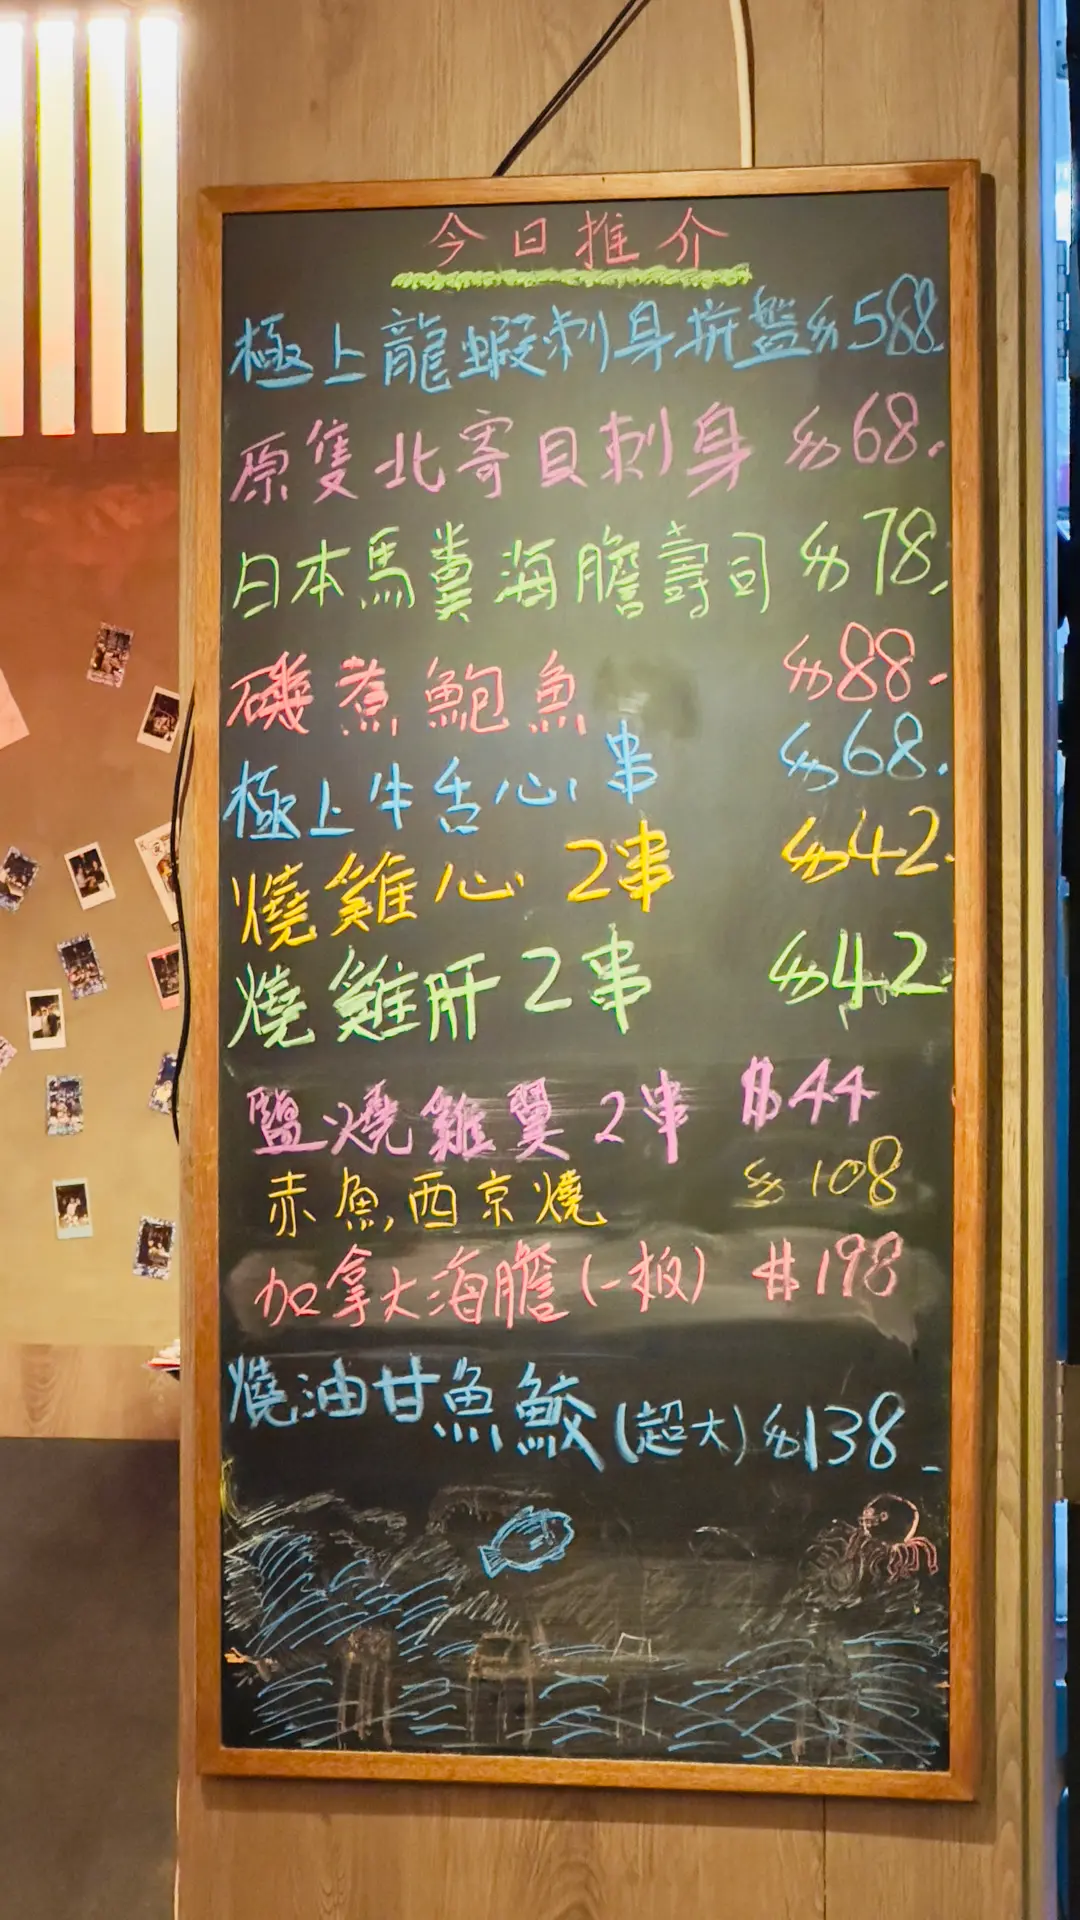 今日推介
極上龍蝦刺身拼盤$588.
原隻北寄貝刺身 $68.
日本馬糞海膽壽司 $78.
磯煮鮑魚 $88.-
極上牛舌心串 $68.
燒雞心 2串 $42.
燒雞肝 2串 $42.
鹽燒雞翼 2串 $44
赤魚西京燒 $108
加拿大海膽(一板) $198
燒油甘魚鮫(超大) $138-